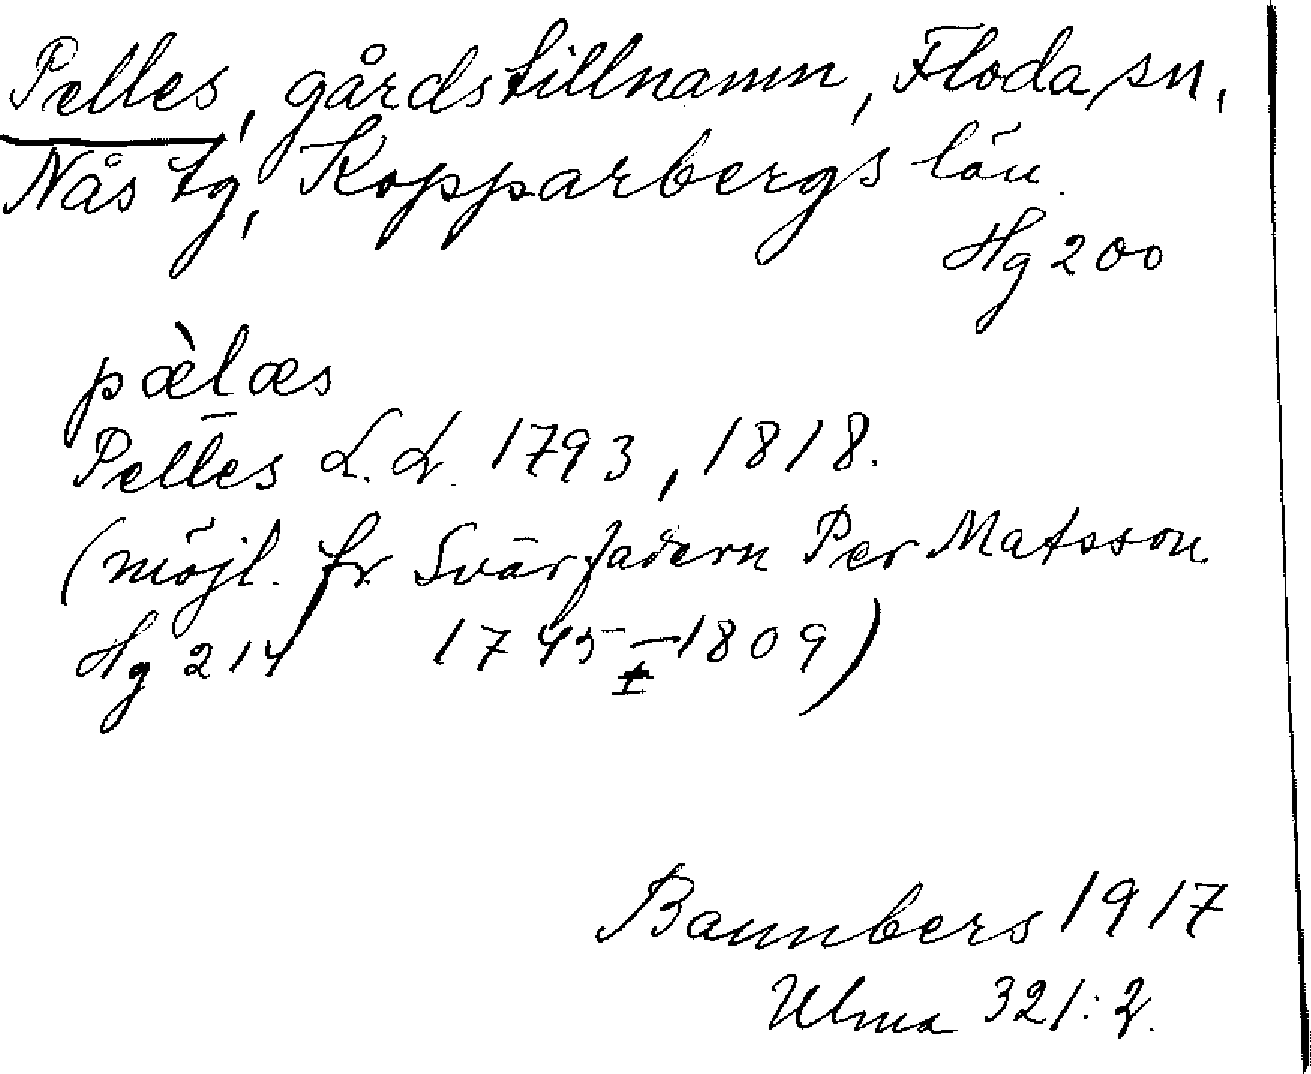 Pelles, gårdstillnamn, Floda sn,
Nås tg, Kopparbergs län.
Hg 200
pæ̀læs
Pelles L.L. 1793, 1818.
(möjl. fr Svärfadern Per Matsson
Hg 214 1745–1809)
±
Bannbers 1917
Ulma 321:2.